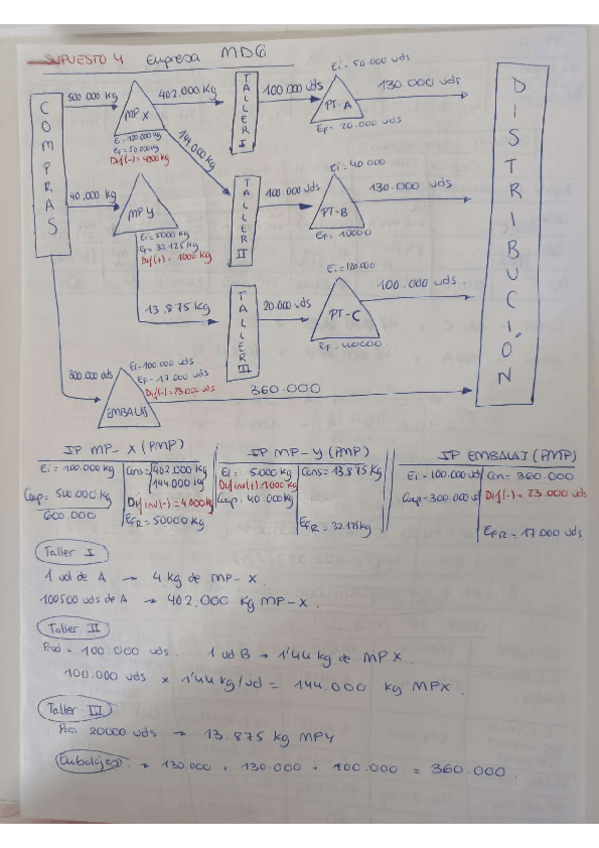 SUPUESTO 4 Empresa MDG
COMPRAS
500.000 kg
MP X
Ei = 100.000 kg
Ef = 50.000 kg
Dif(-) = 4000 kg
402.000 kg
144.000 kg
TALLER I
100.000 uds
Ei = 50.000 uds
PT-A
EF = 20.000 uds
130.000 uds
40.000 kg
MP Y
Ei = 5000 kg
EF = 32.125 kg
Dif(+) = 1000 kg
TALLER II
100.000 uds
Ei = 40.000
PT-B
EF = 10000
130.000 uds
13.875 kg
TALLER III
20.000 uds
Ei = 120.000
PT-C
EF = 40000.
100.000 uds.
300.000 uds
Ei = 100.000 uds
EF = 17.000 uds
Dif(-) = 23.000 uds
EMBALAJ
360.000
DISTRIBUCIÓN
IP MP-X (PMP)
Ei = 100.000 kg
Cons = 402.000 kg
144.000 kg
Comp = 500.000 kg
Dif inv(-) = 4.000 kg
600.000
EFR = 50000 kg
IP MP-Y (PMP)
Ei = 5000 kg
Cons = 13.875 kg
Dif inv(+) = 1000 kg
Comp = 40.000 kg
EFR = 32.125 kg
IP EMBALAJ (PMP)
Ei = 100.000 uds
Con = 360.000
Comp = 300.000 ud
Dif(-) = 23.000 uds
EFR = 17.000 uds
Taller I
1 ud de A → 4 kg de MP-X.
100500 uds de A → 402.000 kg MP-X.
Taller II
Prod = 100.000 uds. 1 ud B → 1'44 kg de MP X.
100.000 uds × 1'44 kg/ud = 144.000 kg MPX.
Taller III
Para 20000 uds → 13.875 kg MPY
Embalajes → 130.000 + 130.000 + 100.000 = 360.000.